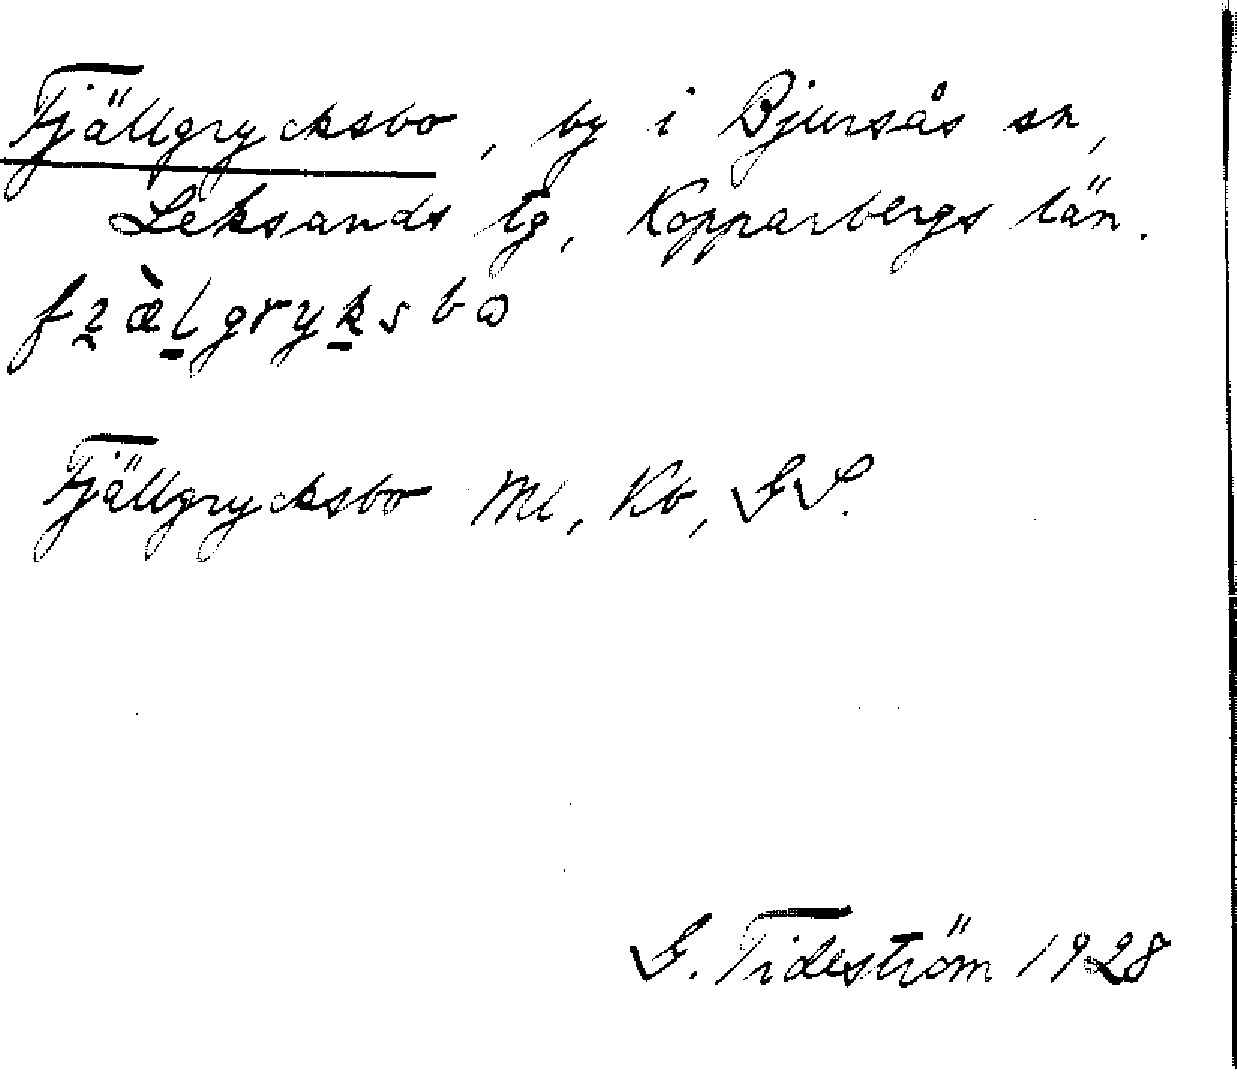 Fjällgrycksbo, by i Bjursås sn,
Leksands tg, Kopparbergs län.
fʒæ̀lgryksbo
Fjällgrycksbo Ml, Kb, GS.
G. Tideström 1928